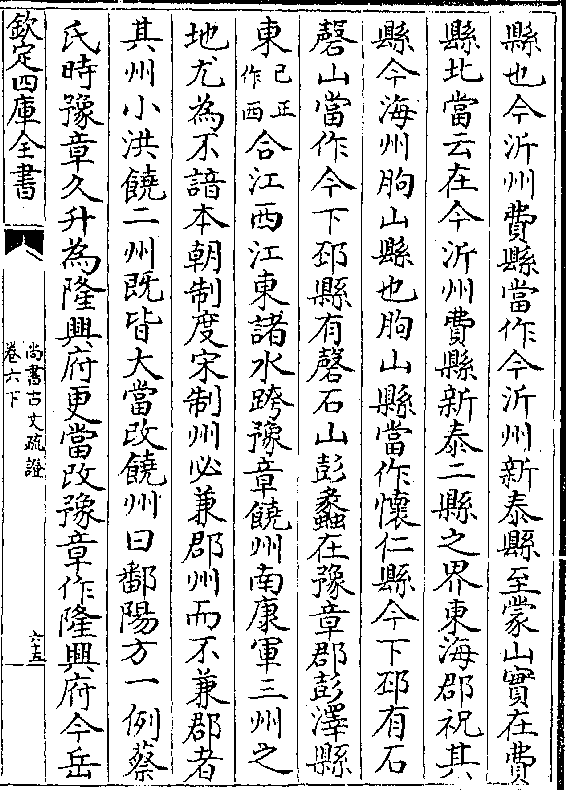 縣也今沂州費縣當作今沂州新泰縣至蒙山實在費
縣北當云在今沂州費縣新泰二縣之界東海郡祝其
縣今海州朐山縣也朐山縣當作懷仁縣今下邳有石
磬山當作今下邳縣有磬石山彭蠡在豫章郡彭澤縣
東已正作西合江西江東諸水跨豫章饒州南康軍三州之
地尤為不諳本朝制度宋制州必兼郡州而不兼郡者
其州小洪饒二州既皆大當改饒州曰鄱陽方一例蔡
氏時豫章久升為隆興府更當改豫章作隆興府今岳
欽定四庫全書
尚書古文疏證
卷六下
六十五